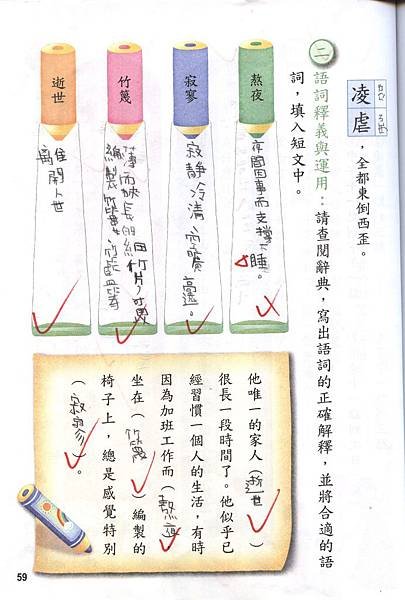 凌虐,全都東倒西歪。
二 語詞釋義與運用:請查閱辭典,寫出語詞的正確解釋,並將合適的語
詞,填入短文中。
熬夜
夜間因事而支撐不睡。
寂寥
寂靜冷清
竹篾
薄而狹長的細竹片,可
編製竹
逝世
離開人世
他唯一的家人(逝世)
很長一段時間了。他似乎已
經習慣一個人的生活,有時
因為加班工作而(熬夜)
坐在(竹篾)編製的
椅子上,總是感覺特別
(寂寥)。
59